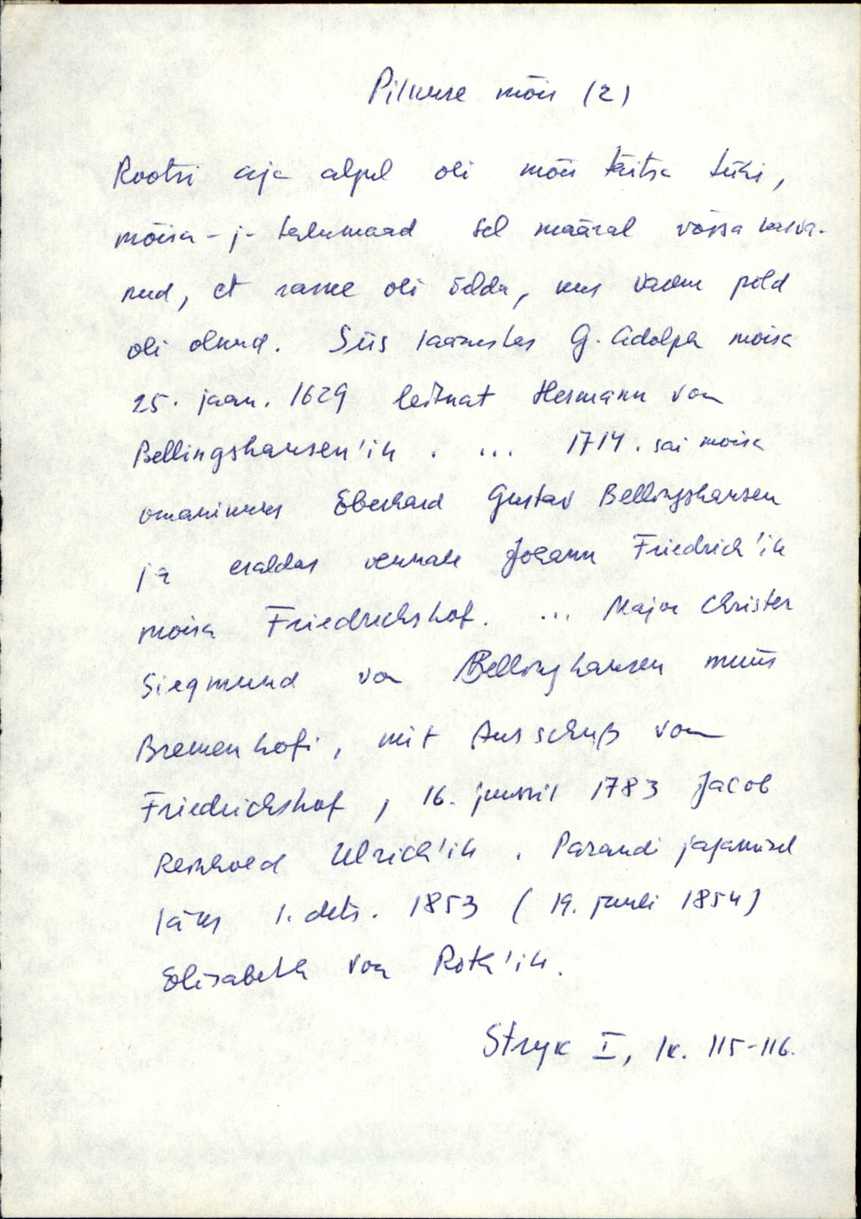 Pilkuse mõis (2)
Rootsi aja algul oli mõis täitsa tühi,
mõisa- ja talumaad sel määral võssa kasva-
nud, et raske oli öelda, kus varem põld
oli olnud. Siis kinnistas G. Adolph mõisa
25. jaan. 1629 leitnat Hermann von
Bellingshausen'ile. ... 1714. sai mõisa
omanikuks Eberhard Gustav Bellingshausen
ja eraldas vennale Johann Friedrich'ile
mõisa Friedrichshof. ... Major Christer
Siegmund von Bellinghausen müüs
Bremenhofi, mit Ausschuß von
Friedrichshof, 16. juunil 1783 Jacob
Reinhold Ulrich'ile. Pärandi jagamisel
läks 1. dets. 1853 (19. juuli 1854)
Elisabeth von Roth'ile.
Stryk I, lk. 115-116.